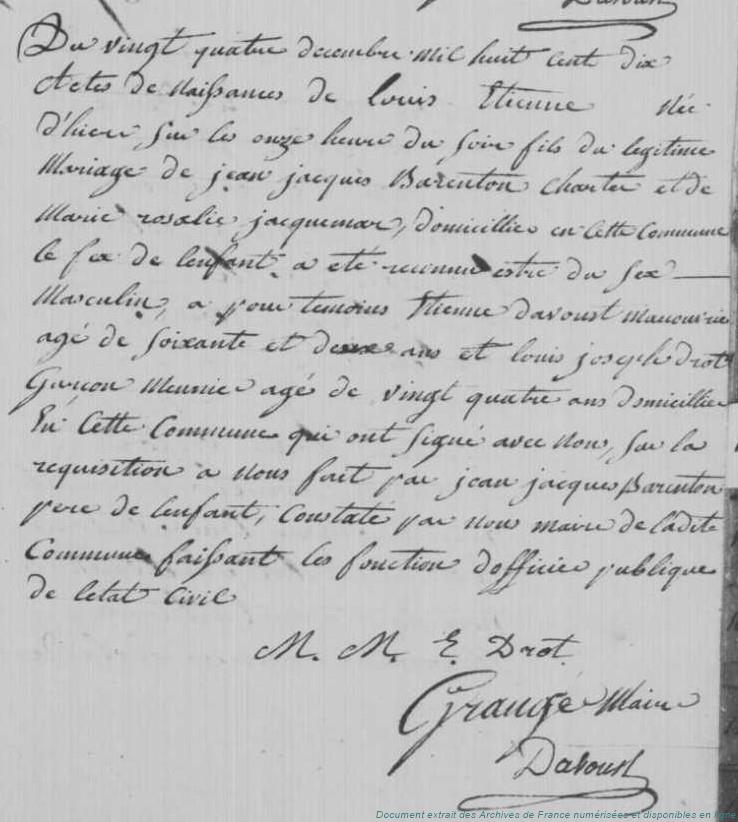 Davoust
Du vingt quatre decembre mil huit cent dix
Actes de Naissances de Louis Etienne Née
d'hier sur les onze heure du soir fils du legitime
Mariage de jean jacques Barenton Chartié et de
Marie rosalie jacquemar, domicillies en Cette Commune
le sex de lenfant a eté reconnu estre du sex
Masculin, a pour temoins Etienne davoust manouvrie
agé de soixante et deux ans et louis joseph drot
Garçon Meunie agé de vingt quatre ans domicillie
En Cette Commune qui ont signé avec nous, sur la
requisition a nous fait par jean jacques Barenton
pere de lenfant, Constaté par nous maire de ladite
Commune faissant les fonction dofficie publique
de letat Civil
M. M. E. Drot.
Grangé Maire
Davoust
Document extrait des Archives de France numérisées et disponibles en ligne